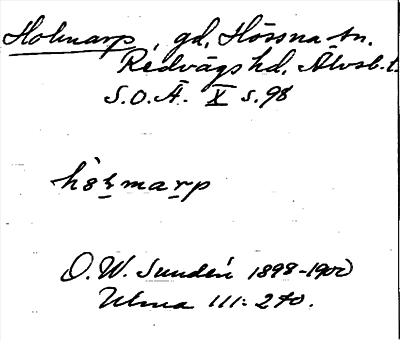 Holmarp, gd, Hössna sn.
Redvägs hd, Älvsb. l.
S.O.Ä. X s. 98
hòlmarp
O.W. Sundén 1898-1900
Ulma 111: 240.